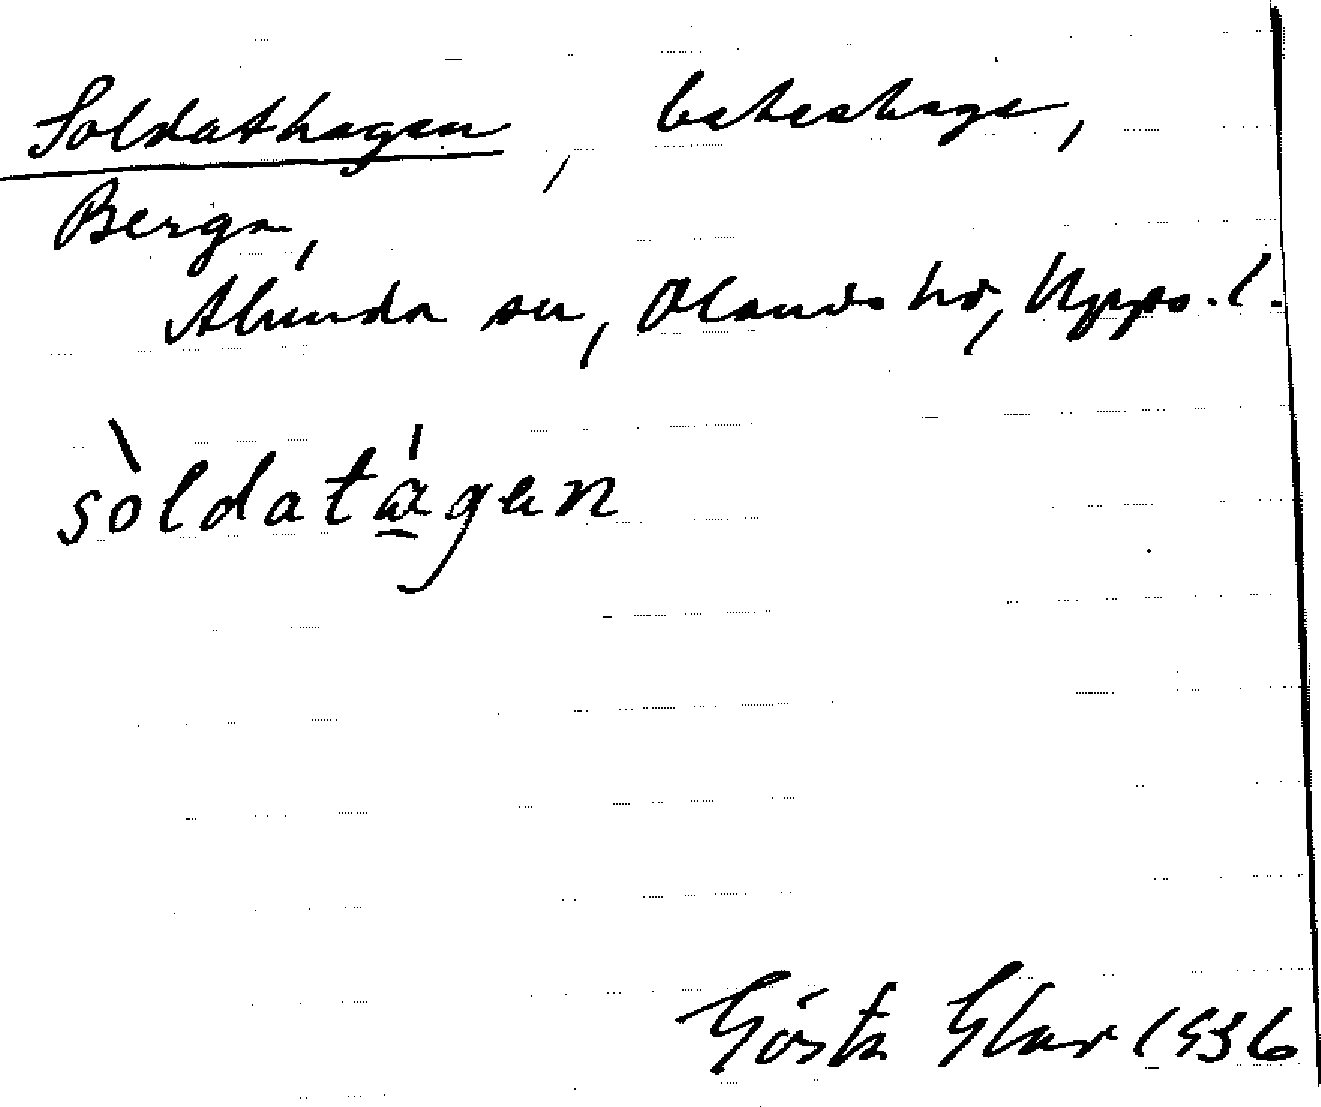 Soldathagen, beteshage,
Berga,
Alunda sn, Olands hd, Upps. l.
sòldatágen
Gösta Elar 1936